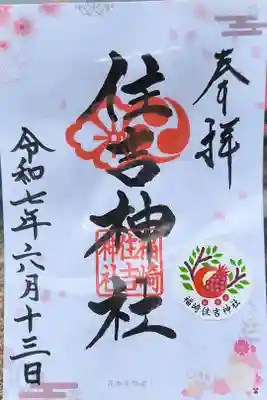 奉拝
住吉神社
福崎
住吉
神社
福崎住吉神社
令和七年六月十三日